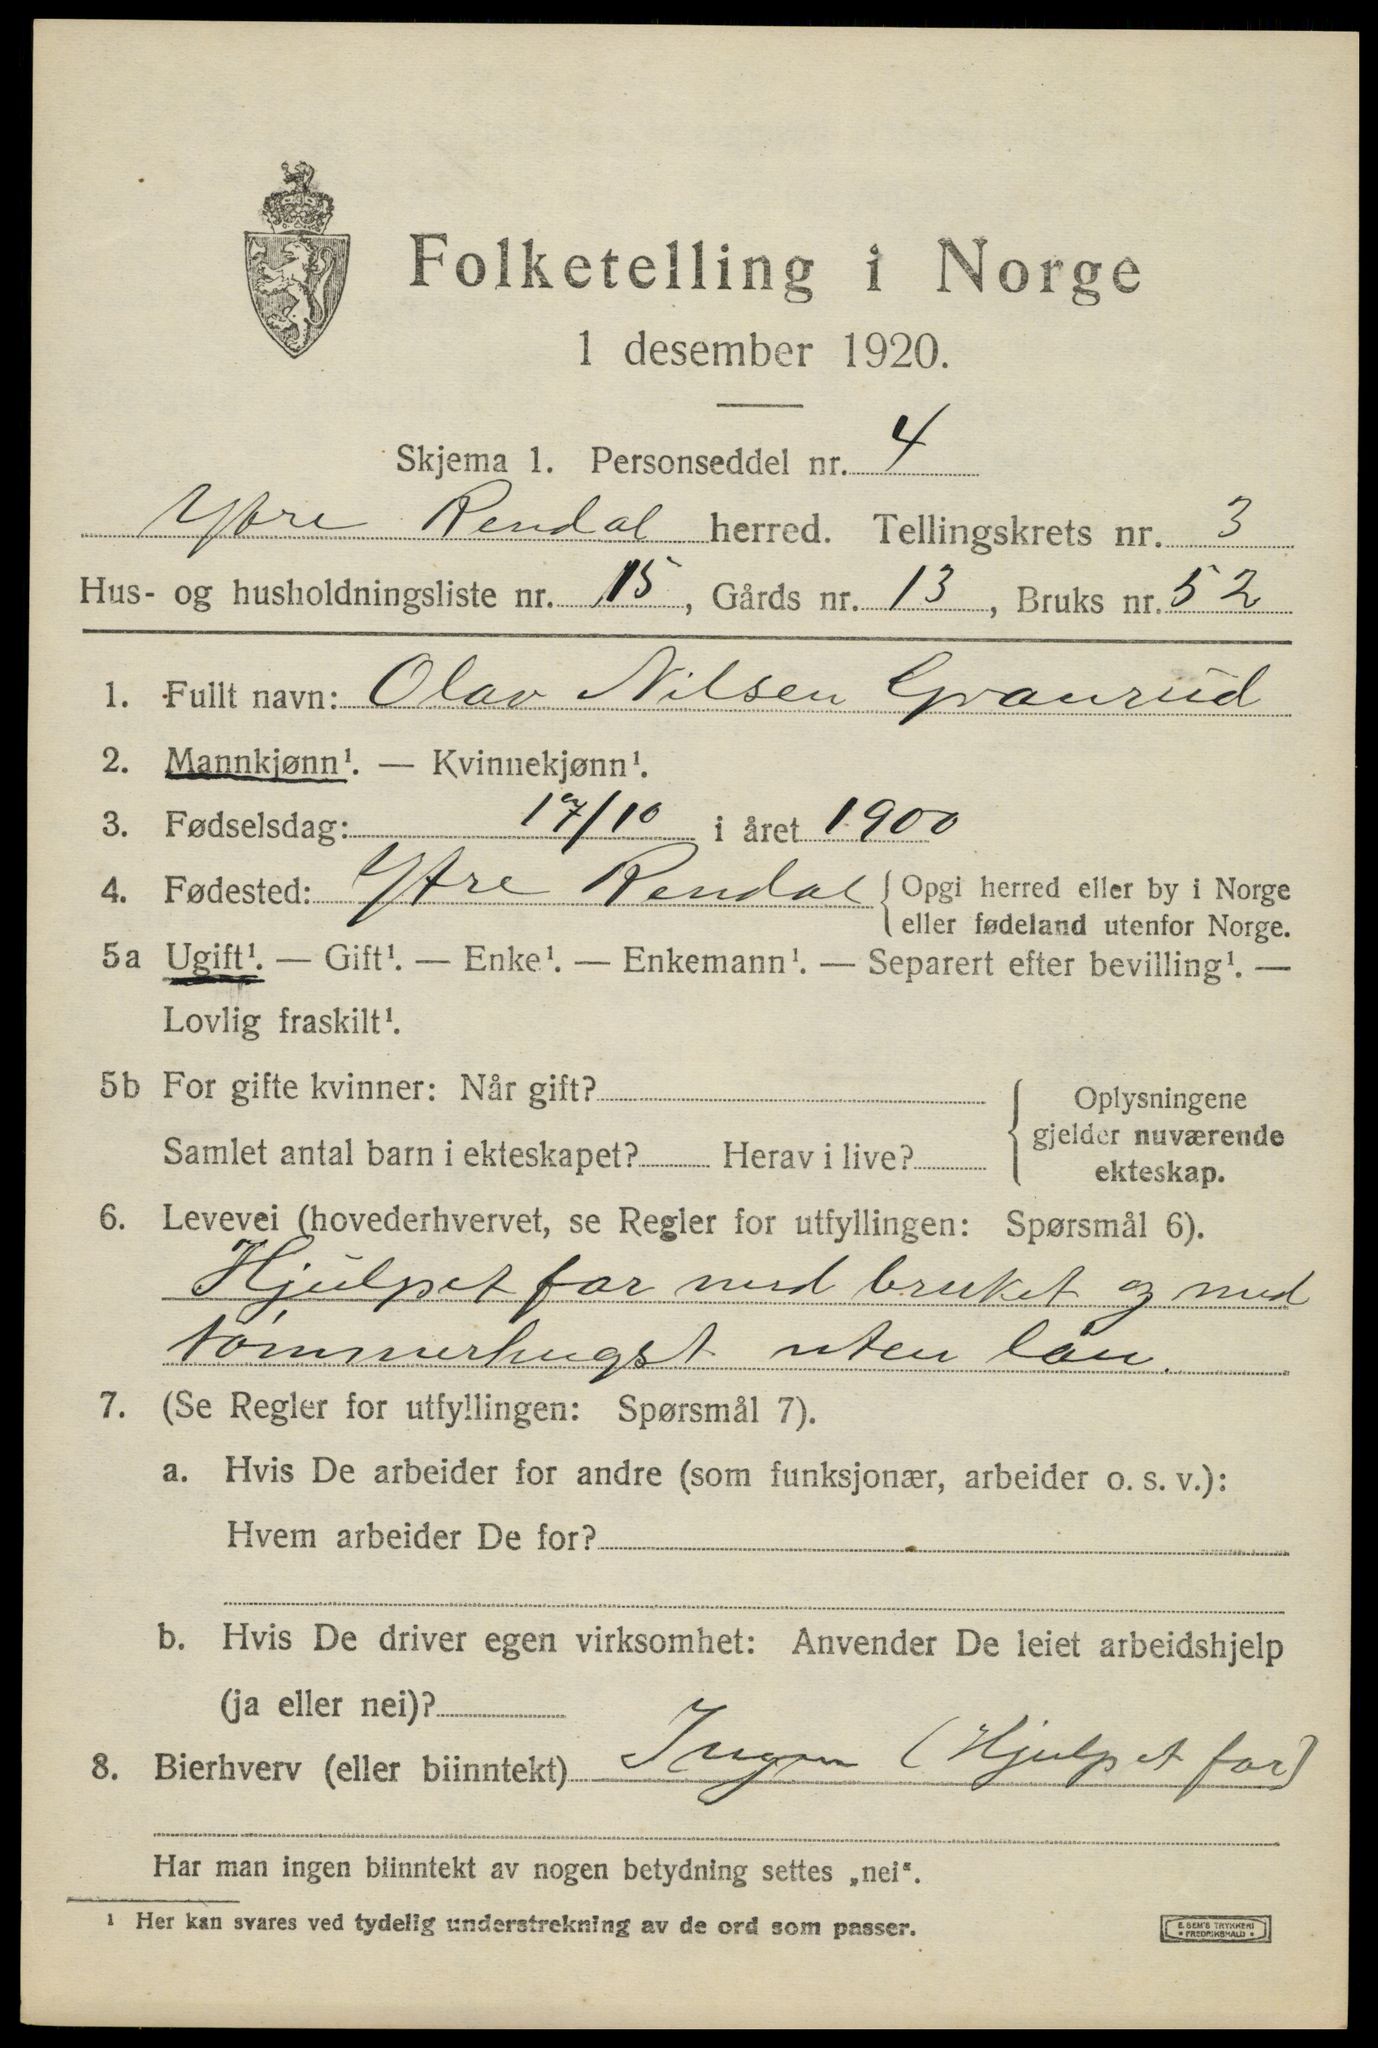 Folketelling i Norge
1 desember 1920.
Skjema 1. Personseddel nr. 4
Ytre Rendal herred. Tellingskrets nr. 3
Hus- og husholdningsliste nr. 15, Gårds nr. 13, Bruks nr. 52
1. Fullt navn: Olav Nilsen Granrud
2. Mannkjønn¹. — Kvinnekjønn¹.
3. Fødselsdag: 17/10 i året 1900
4. Fødested: Ytre Rendal { Opgi herred eller by i Norge
eller fødeland utenfor Norge.
5a Ugift¹. — Gift¹. — Enke¹. — Enkemann¹. — Separert efter bevilling¹. —
Lovlig fraskilt¹.
5b For gifte kvinner: Når gift?
Samlet antal barn i ekteskapet? Herav i live?
Oplysningene
gjelder nuværende
ekteskap.
6. Levevei (hovederhvervet, se Regler for utfyllingen: Spørsmål 6).
Hjulpet far med bruket og med
tømmerhugst uten løn.
7. (Se Regler for utfyllingen: Spørsmål 7).
a. Hvis De arbeider for andre (som funksjonær, arbeider o. s. v.):
Hvem arbeider De for?
b. Hvis De driver egen virksomhet: Anvender De leiet arbeidshjelp
(ja eller nei)?
8. Bierhverv (eller biinntekt) Ingen (Hjulpet far)
Har man ingen biinntekt av nogen betydning settes „nei“.
¹ Her kan svares ved tydelig understrekning av de ord som passer.
E. SEM'S TRYKKERI
* FREDRIKSHALD *